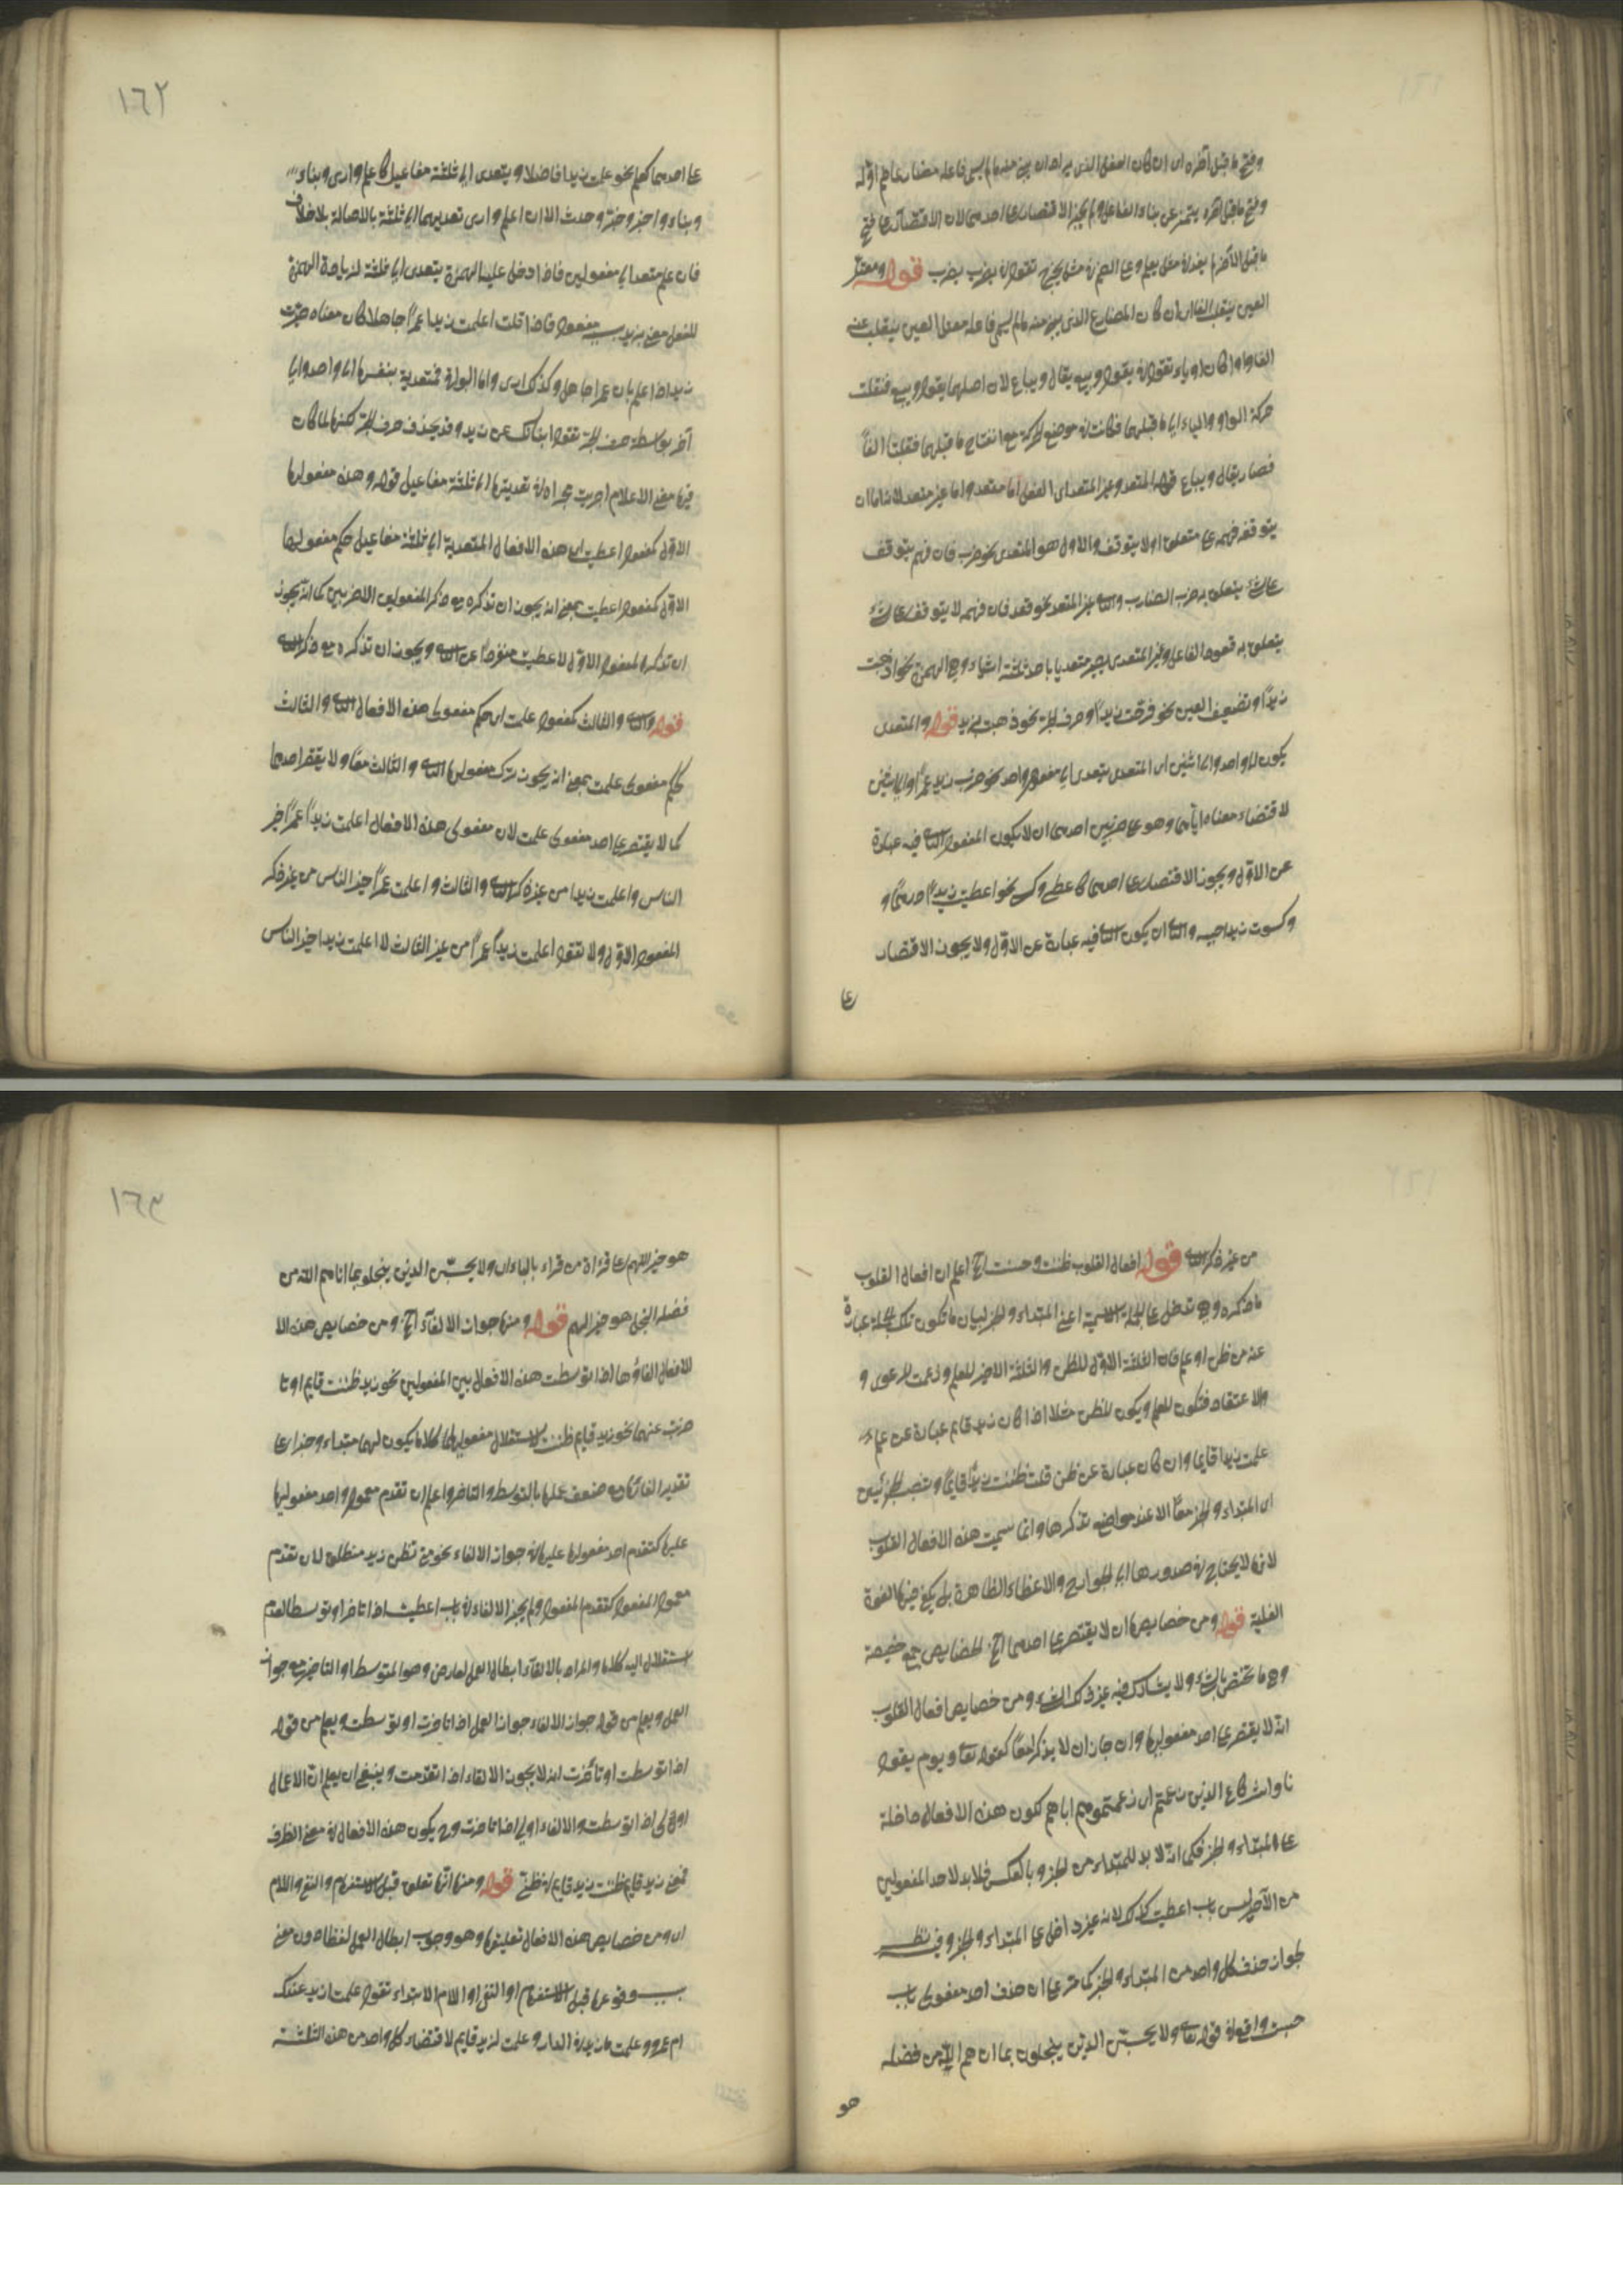 وفتح ما قبل آخره اى ان كان الفعل الذى يراد ان يبنى منه ما لم يسم فاعله مضارعا ضم اوله
وفتح ما قبل آخره يتميز عن بناء الفاعل ولم يجز الاقتصار على احدهما لان الاقتصار على فتح
ما قبل الآخر مثل يعلم وعلى الضم فى مثل يخرج تقول فى يضرب يضرب قوله ومعتل
العين ينقلب الفا اى ان كان المضارع الذى يبنى منه ما لم يسم فاعله معتل العين ينقلب عينه
الفا واوا كان او ياء تقول فى يقول ويبيع يقال ويباع لان اصلهما يقول ويبيع فنقلت
حركة الواو والياء الى ما قبلهما فكانت فى موضع الحركة مع انفتاح ما قبلهما فقلبتا الفاً
فصار يقال ويباع قوله المتعدى وغير المتعدى اى الفعل اما متعد واما غير متعد لانه اما ان
يتوقف فهمه على متعلق او لا يتوقف والاول هو المتعدى نحو ضرب فان فهمه يتوقف
على شئ يتعلق به ضرب الضارب والثانى غير المتعدى نحو قعد فان فهمه لا يتوقف على شئ
يتعلق به قعود الفاعل وغير المتعدى يصير متعديا باحد ثلثة اشياء وهى الهمزة نحو اذهبت
زيدًا وتضعيف العين نحو فرحت زيدًا وحرف الجر نحو ذهبت بزيد قوله والمتعدى
يكون الى واحد والى اثنين اى المتعدى يتعدى الى مفعول واحد نحو ضرب زيد عمرًا والى اثنين
لاقتضاء معناه اياهما وهو على ضربين احدهما ان لا يكون المفعول الثانى فيه عبارة
عن الاول ويجوز الاقتصار على احدهما كاعطى وكسى نحو اعطيت زيدًا درهمًا و
وكسوت زيدا جبة والثانى ان يكون الثانى فيه عبارة عن الاول ولا يجوز الاقتصار
على
١٦٢
على احدهما كعلم نحو علمت زيدا فاضلا ويتعدى الى ثلثة مفاعيل كاعلم وارى وبناء
وبناء واخبر وخبر وحدث الا ان اعلم وارى تعديهما الى ثلثة بالاصالة بلا خلاف
فان علم متعد الى مفعولين فاذا دخل عليه الهمزة يتعدى الى ثلثة لزيادة الهمزة
للفعل معنى يزيد بسببه مفعول فاذا قلت اعلمت زيدا عمرًا جاهلا كان معناه صيرت
زيدا ذا علم بان عمرا جاهل وكذلك ارى واما البواقى فمتعدية بنفسها الى واحد والى
آخر بواسطة حرف الجر تقول انبأتك عن زيد وقد يحذف حرف الجر لكنها لما كان
فيها معنى الاعلام اجريت مجراه فى تعديتها الى ثلثة مفاعيل قوله وهذه مفعولها
الاول كمفعول اعطيت اى هذه الافعال المتعدية الى ثلثة مفاعيل حكم مفعولها
الاول كمفعول اعطيت بمعنى انه يجوز ان تذكره مع ذكر المفعولين الاخرين كما انه يجوز
ان تذكر المفعول الاول لاعطيت منفردًا عن الثانى ويجوز ان تذكره مع ذكر الثانى
قوله والثانى والثالث كمفعولى علمت اى حكم مفعولى هذه الافعال الثانى والثالث
كحكم مفعولى علمت بمعنى انه يجوز ترك مفعوليها الثانى والثالث معًا ولا يقتصر احدهما
كما لا يقتصر على احد مفعولى علمت لان مفعولى هذه الافعال اعلمت زيدًا عمرًا خير
الناس واعلمت زيدا من غير ذكر الثانى والثالث واعلمت عمرًا خير الناس من غير ذكر
المفعول الاول ولا تقول اعلمت زيدًا عمرًا من غير الثالث لا اعلمت زيدا خير الناس
من غير ذكر الثانى قوله افعال القلوب ظننت وحسبت الخ اعلم ان افعال القلوب
ما ذكره وهى تدخل على الجملة الاسمية اعنى المبتداء والخبر لبيان ما تكون تلك الجملة عبارة
عنه من ظن او علم فان الثلثة الاول للظن والثلثة الاخير للعلم وزعمت للدعوى و
والاعتقاد فتكون للعلم ويكون للظن مثلا اذا كان زيد قايم عبارة عن علم
علمت زيدا قايما وان كان عبارة عن ظن قلت ظننت زيدًا قايمًا وتنصب الجزئين
اى المبتداء والخبر معًا الا عند مواضع نذكرها وانما سميت هذه الافعال القلوب
لانها لا يحتاج فى صدورها الى الجوارح والاعضاء الظاهرة بل يكفى فيها القوة
القلبية قوله ومن خصايصها ان لا يقتصر على احدهما الخ الخصايص جمع خصيصة
وهى ما تختص بالشئ ولا يشارك فيه غير ذلك الشئ ومن خصايص افعال القلوب
انه لا يقتصر على احد مفعوليها وان جاز ان لا يذكرا معًا كقوله تعالى ويوم يقول
نادوا شركاءى الذين زعمتم اى زعمتموهم اياهم لكون هذه الافعال داخلة
على المبتداء والخبر فكما انه لا بد للمبتداء من الخبر وبالعكس فلا بد لاحد المفعولين
من الآخر ليس باب اعطيت كذلك لانه غير داخل على المبتداء والخبر وفيه نظر
لجواز حذف كل واحد من المبتداء والخبر كما مر على ان حذف احد مفعولى باب
حسبت واقع فى قوله تعالى ولا يحسبن الذين يبخلون بما آتاهم الله من فضله
هو
١٦٣
هو خير اللهم على قراءة من قراء بالياء اى ولا يحسبن الذين يبخلو بما اتاهم الله من
فضله البخل هو خير الهم قوله ومنها جواز الالغآء الخ ومن خصايص هذه الا
الافعال الغاؤها اذا توسطت هذه الافعال بين المفعولين نحو زيد ظننت قايم او تا
خرت عنهما نحو زيد قايم ظننت لاستقلال مفعوليها كلاما يكون لهما مبتداء وخبرا على
تقدير الغائها مع ضعف عملها بالتوسط والتاخر واعلم ان تقدم معمول احد مفعوليها
عليها كتقدم احد مفعولها عليها فى جواز الالغاء نحو متى تظن زيد منطلق لان تقدم
معمول المفعول كتقدم المفعول ولم يجز الالغاء فى باب اعطيت اذا تاخر او توسط لعدم
استقلال اليه كلاما والمراد بالالغآء ابطال العمل لعارض وهو المتوسط او التاخير مع جواز
العمل ويعلم من قوله جواز الالغاء جواز العمل اذا تاخرت او توسطت ويعلم من قوله
اذا توسطت او تأخرت انه لا يجوز الالغاء اذا تقدمت وينبغى ان يعلم ان الاعمال
اولى اذا توسطت والالغاء اولى اذا تاخرت وح يكون هذه الافعال فى معنى الظرف
فمعنى زيد قايم ظننت زيد قايم فى ظنى قوله ومنها انها تعلق قبل الاستفهام والنفى واللام
اى ومن خصايص هذه الافعال تعليقها وهو وجوب ابطال العمل لفظا دون معنى
بسبب وقوعها قبل الاستفهام او النفى او اللام الابتداء تقول علمت ازيد عندك
ام عمرو وعلمت ما زيد فى الدار وعلمت لزيد قايم لاقتضاء كل واحد من هذه الثلثة